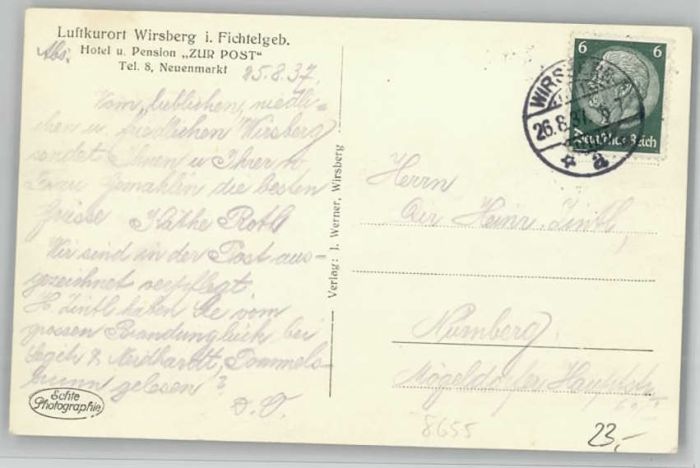 Luftkurort Wirsberg i. Fichtelgeb.
Hotel u. Pension „ZUR POST“
Tel. 8, Neuenmarkt
Abs.
25.8.37.
Vom lieblichen, niedli-
chen u. friedlichen Wirsberg
sendet Ihnen u Ihrer
Frau Gemahlin die besten
Grüsse Käthe Roth
Wir sind in der Post aus-
gezeichnet verpflegt.
H. Zintl haben Sie vom
grossen Brandunglück bei
& Neidhardt, Pommels-
brunn gelesen?
D. O.
Echte
Photographie
Verlag: J. Werner, Wirsberg
6 6
Deutsches Reich
WIRSBERG
26.8.37
a
Herrn
Heinr. Zintl,
Nürnberg
Mögeldorfer Hauptstr.
8655
23,-